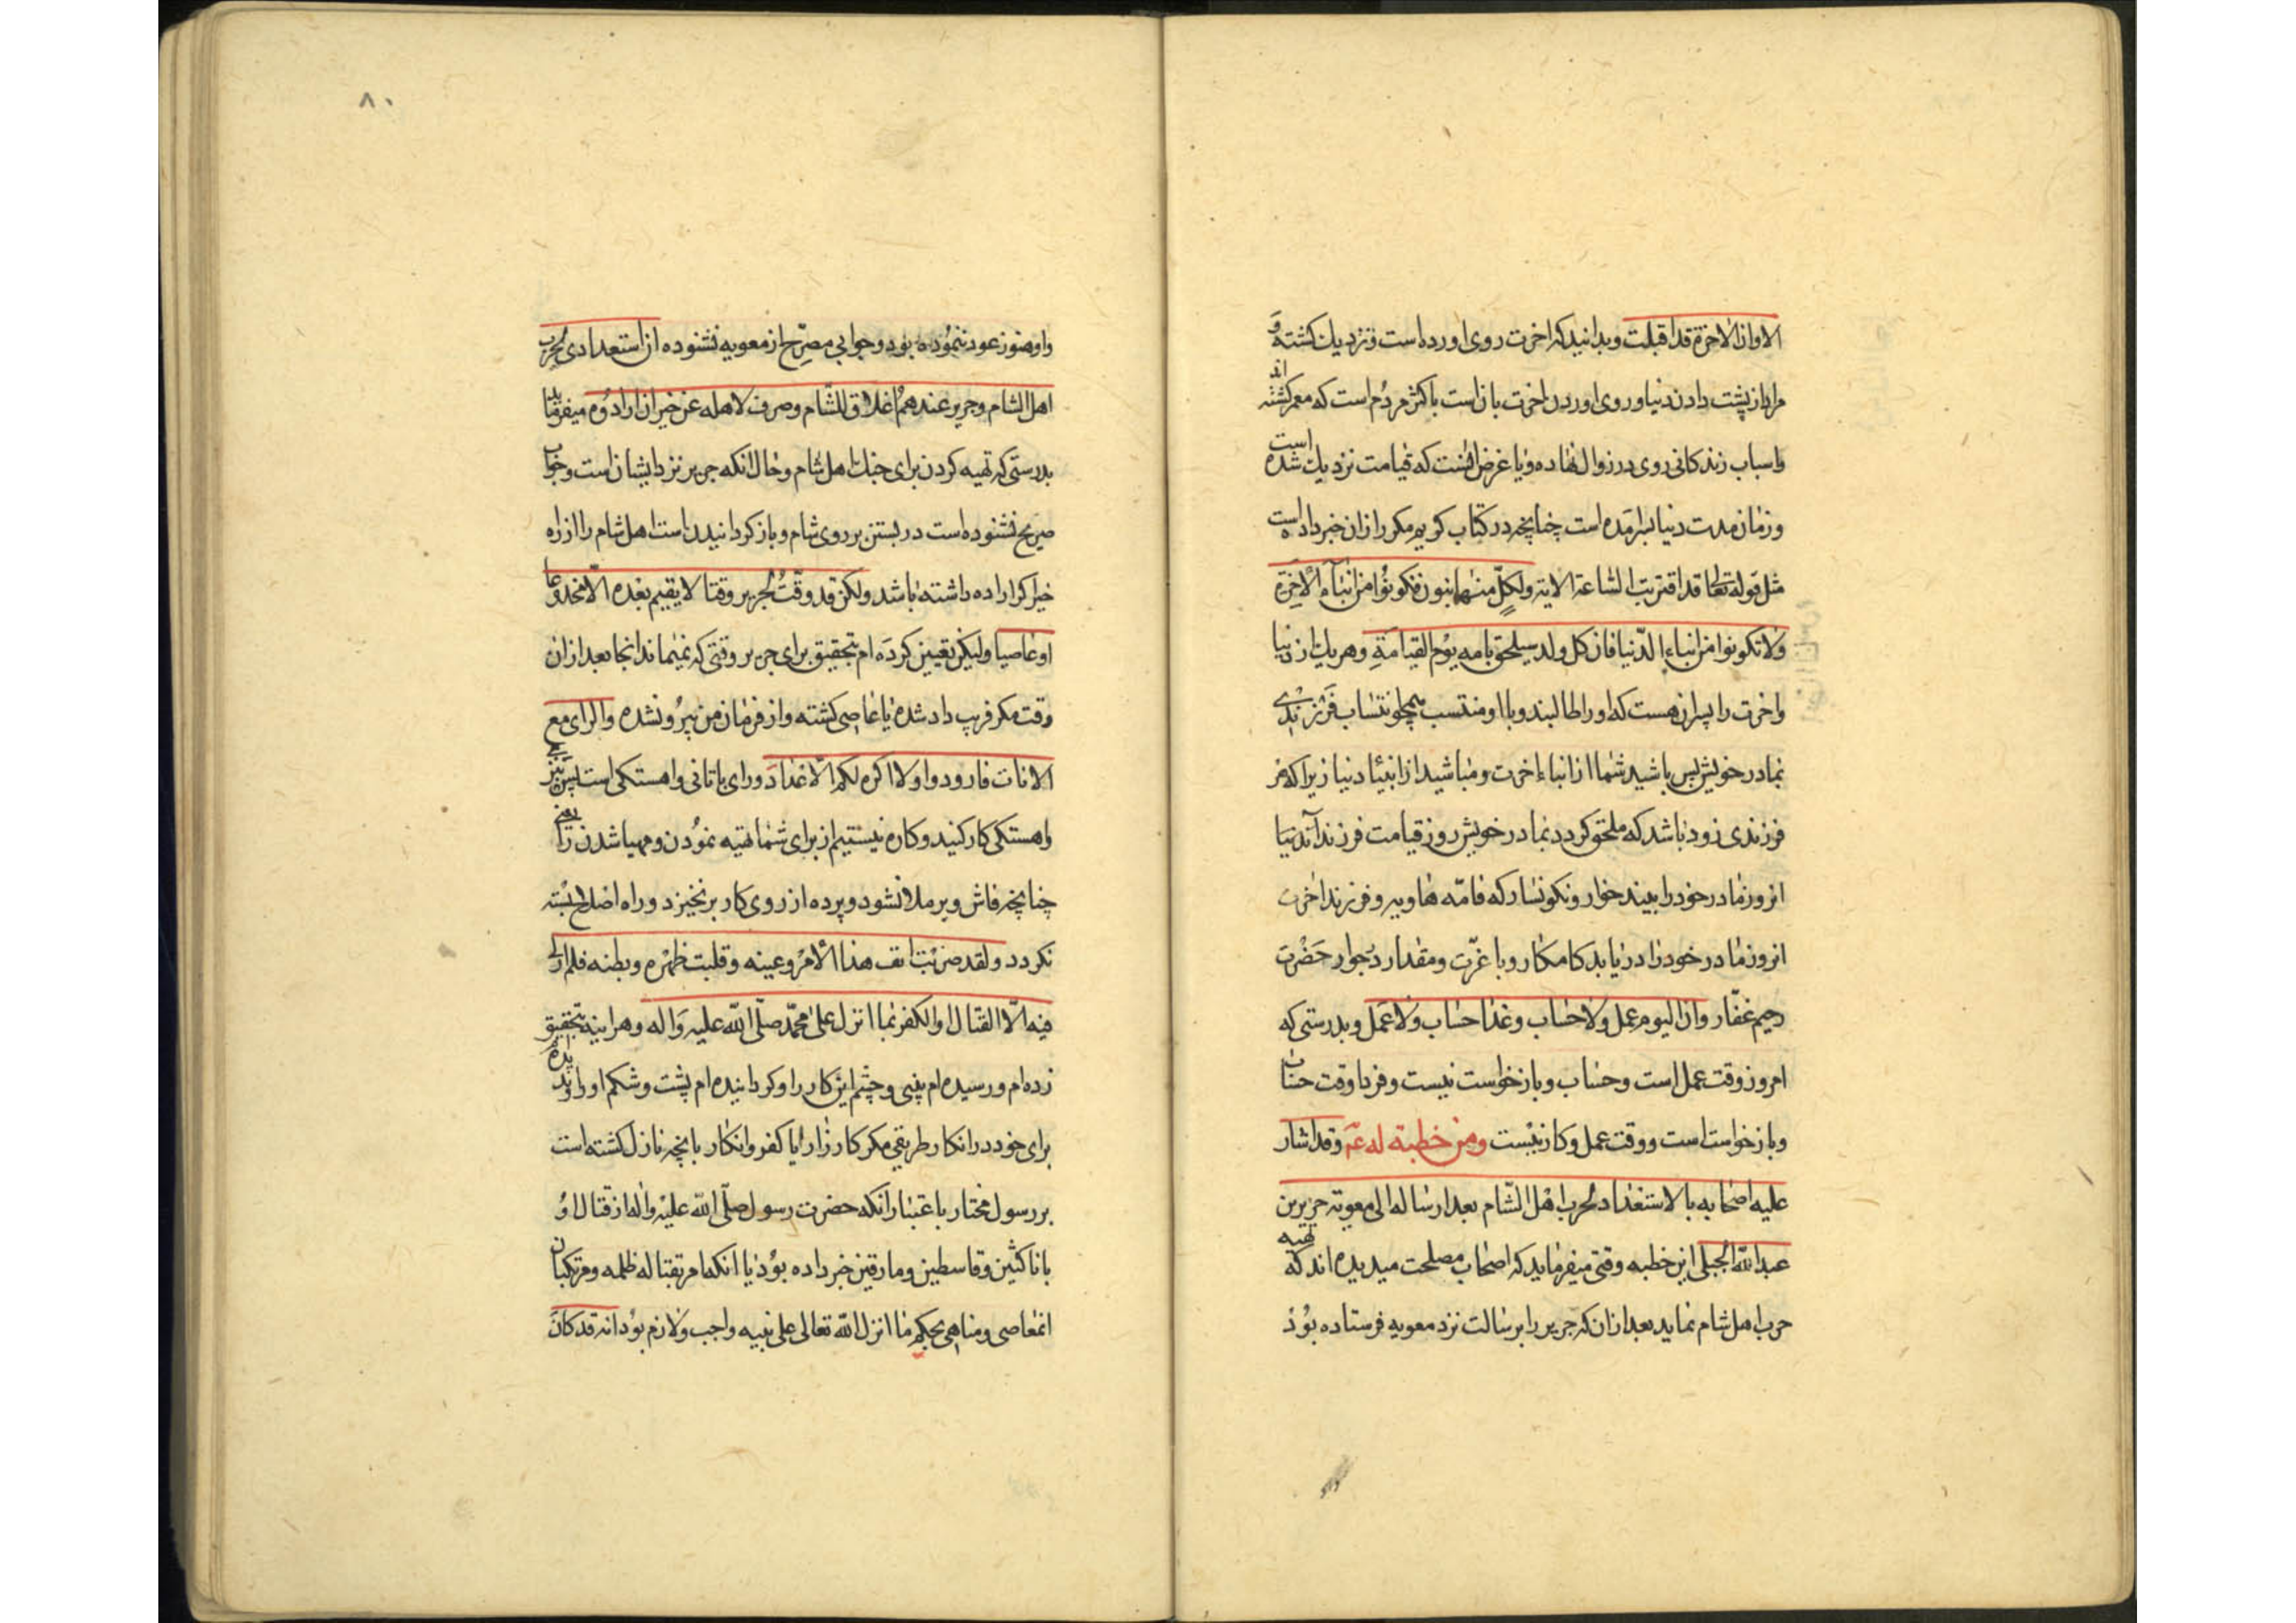 الا وان الاخرة قد اقبلت وبدانید که اخرت روی اورده است و نزدیك کشته و
مراد از پشت دادن دنیا و روی اوردن اخرت بان است با کثر مردم است که معمر کشته اند
و اسباب زندکانی روی در زوال نهاده و یا غرض انست که قیامت نزدیك شده است
و زمان مدت دنیا بسرامده است چنانچه در کتاب کریم مکرر ازان خبر داده است
مثل قوله تعالی قد اقتربت الساعة الایة ولکل منهما بنون فکونوا من ابناء الاخرة
ولا تکونوا من ابناء الدنیا فان کل ولد سیلحق بامه یوم القیامة و هریك از دنیا
و اخرت را پسران هست که او را طالبند و با او منتسب همچو انتساب فرزندی
بمادر خویش پس باشید شما از ابناء اخرت و مباشید از ابناء دنیا زیرا که هر
فرزندی زود باشد که ملحق کردد بمادر خویش روز قیامت فرزند دنیا
انروز مادر خود را بیند خوار و نکونسار که فامّه هاویه و فرزند اخرت
انروز مادر خود را دریابد کامکار و با عزّت و مقدار در جوار حضرت
رحیم غفّار وان الیوم عمل ولا حساب وغدا حساب ولا عمل وبدرستی که
امروز وقت عمل است و حساب و بازخواست نیست و فردا وقت حساب
و بازخواست است و وقت عمل و کار نیست ومن خطبة له عم وقد اشار
علیه اصحابه بالاستعداد لحرب اهل الشام بعد ارساله الی معویة جریر بن
عبدالله البجلی این خطبه وقتی میفرماید که اصحاب مصلحت میدیده اند که تهیه
حرب اهل شام نماید بعد ازان که جریر را برسالت نزد معویه فرستاده بود
۸۰
و او هنوز عود ننموده بود و جوابی مصرّح از معویه نشنوده ان استعدادی لحرب
اهل الشام وجریر عندهم اغلاق للشام وصرف لاهله عن خیر ان ارادوه میفرماید
بدرستی که تهیه کردن برای جنك اهل شام و حال انکه جریر نزد ایشان است و جواب
صریح نشنوده است در بستن بر روی شام و بازکردانیدن است اهل شام را از راه
خیر اکر اراده داشته باشد ولکن قد وقّتُ لجریر وقتا لا یقیم بعده الّا مخدوعا
او عاصیا ولیکن تعیین کرده ام بتحقیق برای جریر وقتی که نمیماند انجا بعد ازان
وقت مکر فریب داد شده یا عاصی کشته و از فرمان من بیرون شده والرای مع
الانات فارودوا ولا اکره لکم الاعداد و رای با تانی و اهستکی است پس
و اهستکی کار کنید و کاره نیستیم از برای شما تهیه نمودن و مهیا شدن را یعنی
چنانچه فاش و برملا نشود و پرده از روی کار برنخیزد و راه اصلاح بسته
نکردد ولقد ضربت انف هذا الامر وعینه وقلبت ظهره وبطنه فلم ار لی
فیه الّا القتال او الکفر بما انزل علی محمّد صلّی الله علیه واله و هراینه بتحقیق
زده ام و رسیده ام بینی و چشم این کار را و کردانیده ام پشت و شکم او را
برای خود در انکار طریقی مکر کارزار یا کفر و انکار بانچه نازل کشته است
بر رسول مختار باعتبار انکه حضرت رسول صلّی الله علیه واله از قتال او
با ناکثین و قاسطین و مارقین خبر داده بود یا انکه امر بقتال ظلمه و مرتکبان
معاصی و مناهی بحکم ما انزل الله تعالی علی نبیه واجب و لازم بود انه قد کان